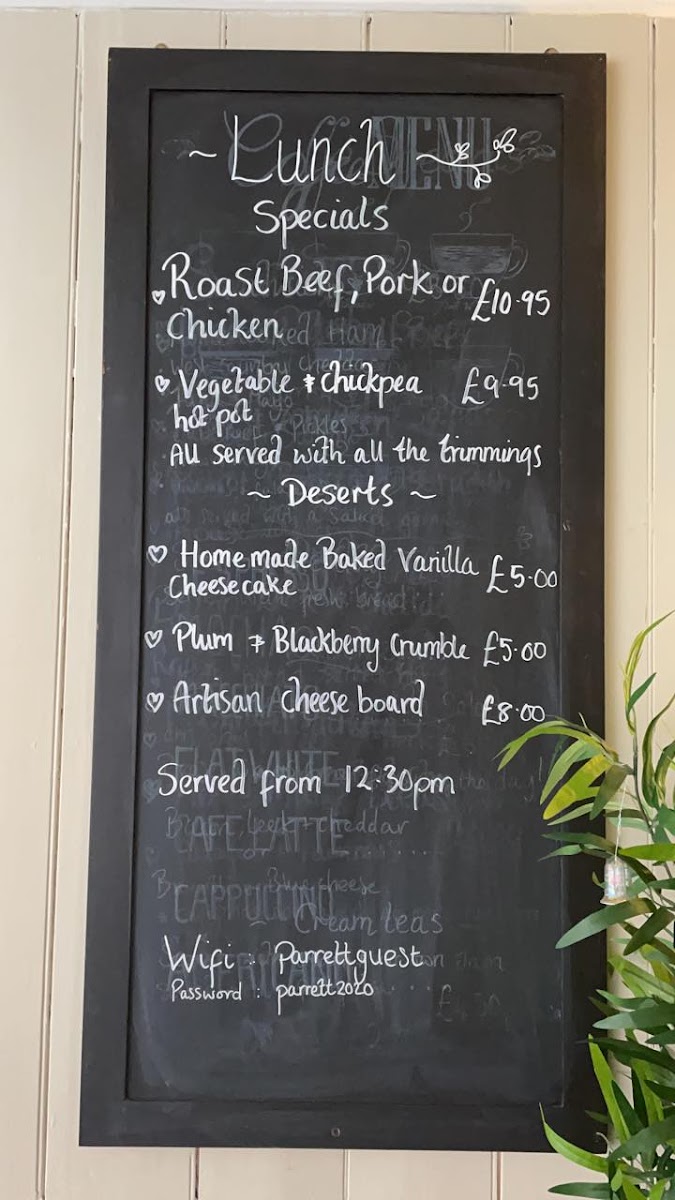 ~ Lunch ~
Specials
Roast Beef, Pork or £10.95
Chicken
Vegetable & chickpea £9.95
hot pot
All served with all the trimmings
~ Deserts ~
Homemade Baked Vanilla £5.00
Cheesecake
Plum & Blackberry Crumble £5.00
Artisan cheese board £8.00
FLAT WHITE
Served from 12.30pm
CAFE LATTE
CAPPUCCINO
Cream teas
Wifi : Parrettguest
Password : parrett2020